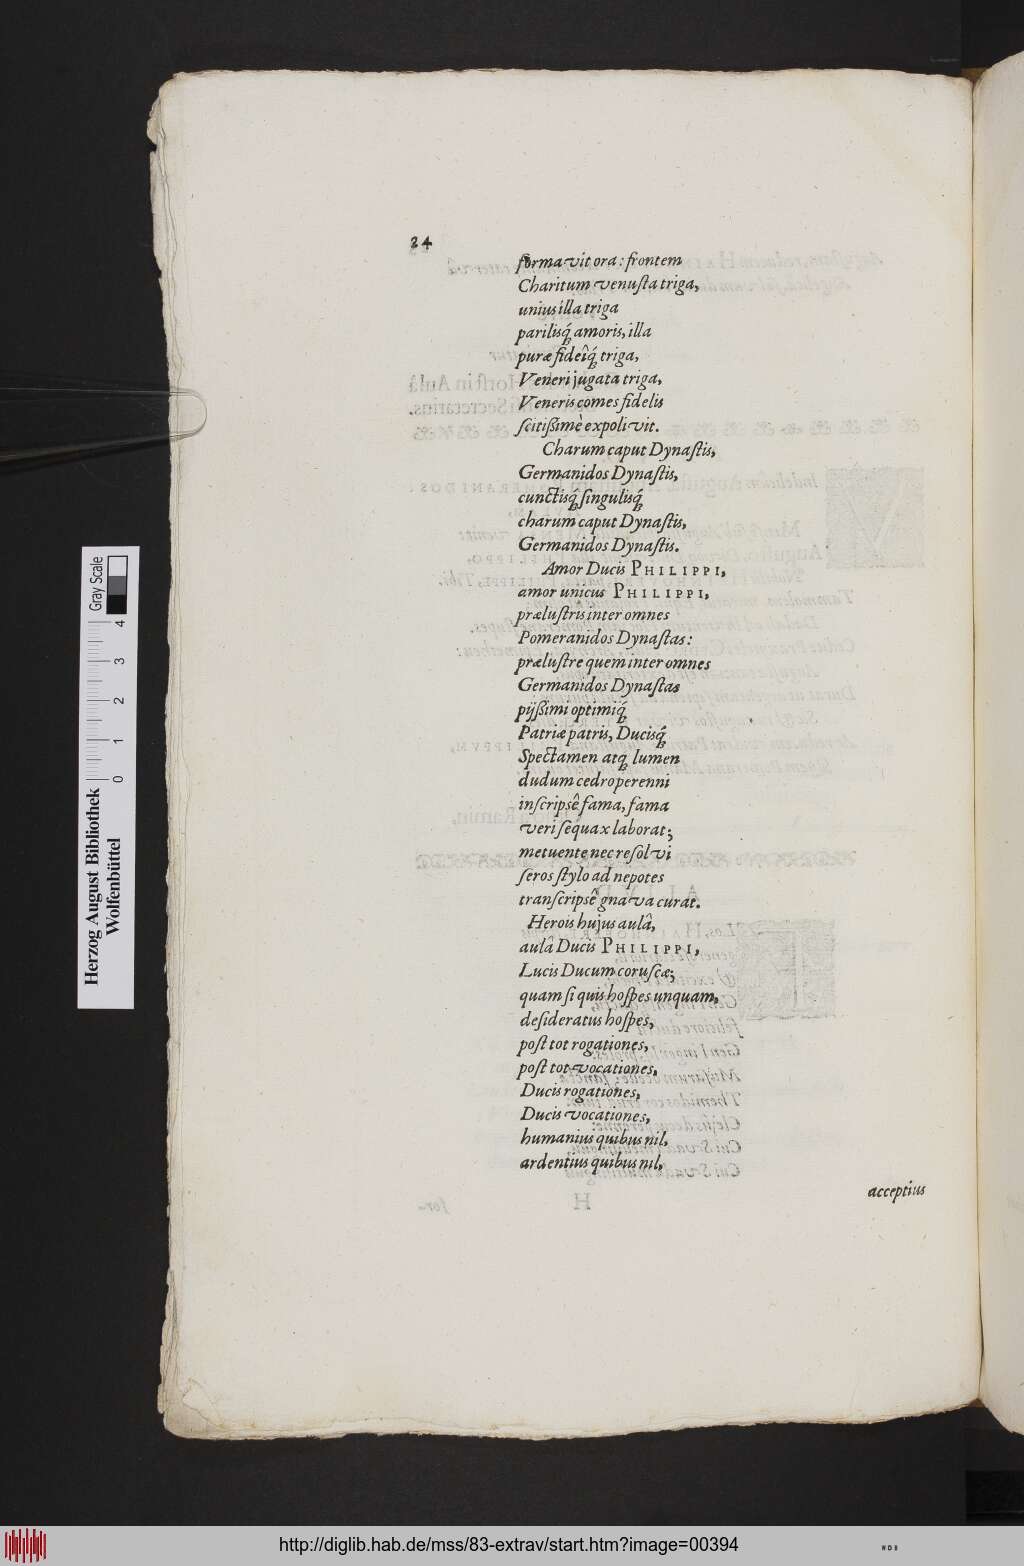 24
formavit ora: frontem
Charitum venusta triga,
unius illa triga
parilisq́; amoris, illa
puræ fideîq́; triga,
Veneri jugata triga,
Veneris comes fidelis
scitißimè expolivit.
Charum caput Dynastis,
Germanidos Dynastis,
cunctisq́; singulisq́;
charum caput Dynastis,
Germanidos Dynastis.
Amor Ducis PHILIPPI,
amor unicus PHILIPPI,
prælustris inter omnes
Pomeranidos Dynastas:
prælustre quem inter omnes
Germanidos Dynastas
pijßimi optimiq́;
Patriæ patris, Ducisq́;
Spectamen atq; lumen
dudum cedro perenni
inscripsê fama, fama
veri sequax laborat;
metuente nec resolvi
seros stylo ad nepotes
transcripsê gnava curat.
Herois hujus aulâ,
aulâ Ducis PHILIPPI,
Lucis Ducum coruscæ;
quam si quis hospes unquam,
desideratus hospes,
post tot rogationes,
post tot vocationes,
Ducis rogationes,
Ducis vocationes,
humanius quibus nil,
ardentius quibus nil,
acceptius
Herzog August Bibliothek
Wolfenbüttel
Gray Scale
0 1 2 3 4
http://diglib.hab.de/mss/83-extrav/start.htm?image=00394